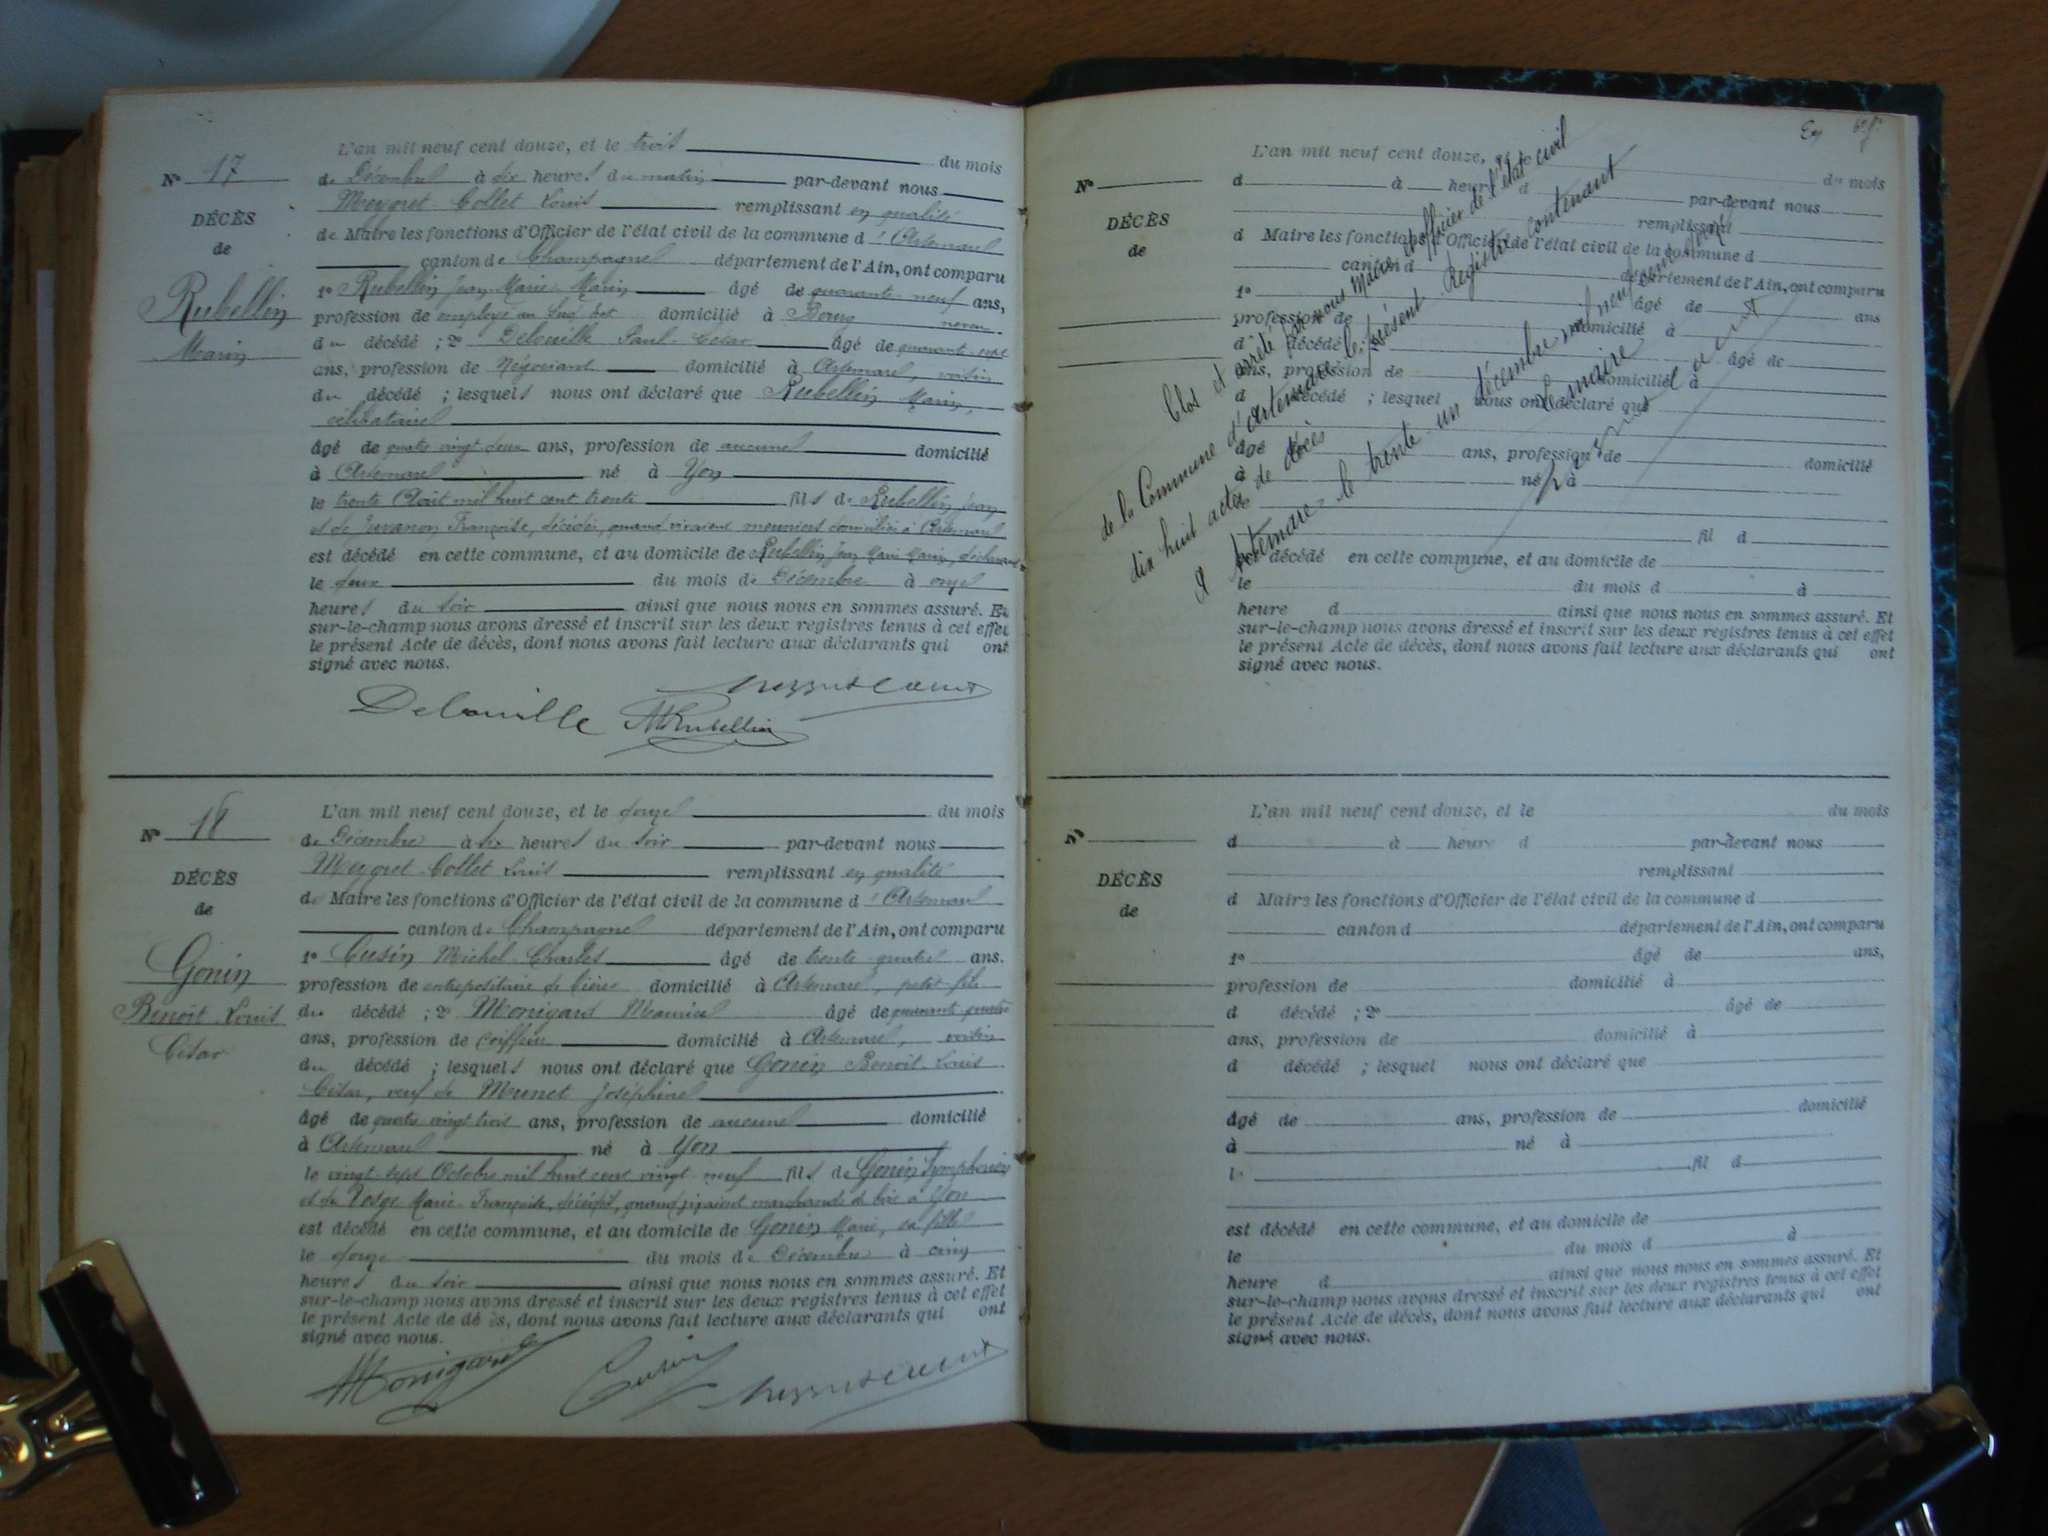 L'an mil neuf cent douze, et le trois du mois
N° 17
de Décembre à six heures du matin par-devant nous
Meygret Collet Louis remplissant en qualité
DÉCÈS
de Maire les fonctions d'Officier de l'état civil de la commune d'Artemare
de
canton de Champagne département de l'Ain, ont comparu
Rubellin
Marin
1° Rubellin Jean Marie Marin âgé de quarante-neuf ans,
profession de employé au domicilié à Bourg neveu
du décédé ; 2° Delouille Paul César âgé de quarante sept
ans, profession de Négociant domicilié à Artemare, voisin
du décédé ; lesquels nous ont déclaré que Rubellin Marin,
célibataire
âgé de quatre vingt deux ans, profession de aucune domicilié
à Artemare né à Yon
le trente Août mil huit cent trente fils de Rubellin Jean
et de Juvanon Françoise, décédés, quand vivaient meuniers domiciliés à Artemare
est décédé en cette commune, et au domicile de Rubellin Jean Marie Marin, déclarant
le deux du mois de Décembre à onze
heures du soir ainsi que nous nous en sommes assuré. Et
sur-le-champ nous avons dressé et inscrit sur les deux registres tenus à cet effet
le présent Acte de décès, dont nous avons fait lecture aux déclarants qui ont
signé avec nous.
Delouille MRubellin
L'an mil neuf cent douze, et le douze du mois
N° 18
de Décembre à six heures du soir par-devant nous
Meygret Collet Louis remplissant en qualité
DÉCÈS
de Maire les fonctions d'Officier de l'état civil de la commune d'Artemare
de
canton de Champagne département de l'Ain, ont comparu
Gonin
Benoit Louis
César
1° Cusin Michel Charles âgé de trente quatre ans.
profession de entrepositaire de bières domicilié à Artemare, petit-fils
du décédé ; 2° Monigard Maurice âgé de quarante quatre
ans, profession de Coiffeur domicilié à Artemare, voisin
du décédé ; lesquels nous ont déclaré que Gonin Benoit Louis
César, veuf de Munet Joséphine
âgé de quatre vingt trois ans, profession de aucune domicilié
à Artemare né à Yon
le vingt sept Octobre mil huit cent vingt neuf fils de Gonin Symphorien
et de Marie Françoise, décédés, quand vivaient marchands de à Yon
est décédé en cette commune, et au domicile de Gonin Marie, sa fille
le douze du mois de Décembre à cinq
heures du soir ainsi que nous nous en sommes assuré. Et
sur-le-champ nous avons dressé et inscrit sur les deux registres tenus à cet effet
le présent Acte de décès, dont nous avons fait lecture aux déclarants qui ont
signé avec nous.
Monigard Cusin
L'an mil neuf cent douze, et le du mois
N°
d à heure d par-devant nous
remplissant
DÉCÈS
d Maire les fonctions d'Officier de l'état civil de la commune d
de
canton d département de l'Ain, ont comparu
1° âgé de ans
profession de domicilié à
d décédé ; 2° âgé de
ans, profession de domicilié à
d décédé ; lesquel nous ont déclaré que
âgé de ans, profession de domicilié
à né à
le
fil d
est décédé en cette commune, et au domicile de
le du mois d à
heure d ainsi que nous nous en sommes assuré. Et
sur-le-champ nous avons dressé et inscrit sur les deux registres tenus à cet effet
le présent Acte de décès, dont nous avons fait lecture aux déclarants qui ont
signé avec nous.
Clos et arrêté par nous Maire officier de l'état civil
de la Commune d'Artemare le présent Registre contenant
dix huit actes de décès
A Artemare le trente-un décembre mil neuf cent douze
Le maire
L'an mil neuf cent douze, et le du mois
N°
d à heure d par-devant nous
remplissant
DÉCÈS
d Maire les fonctions d'Officier de l'état civil de la commune d
de
canton d département de l'Ain, ont comparu
1° âgé de ans,
profession de domicilié à
d décédé ; 2° âgé de
ans, profession de domicilié à
d décédé ; lesquel nous ont déclaré que
âgé de ans, profession de domicilié
à né à
le fil d
est décédé en cette commune, et au domicile de
le du mois d à
heure d ainsi que nous nous en sommes assuré. Et
sur-le-champ nous avons dressé et inscrit sur les deux registres tenus à cet effet
le présent Acte de décès, dont nous avons fait lecture aux déclarants qui ont
signé avec nous.